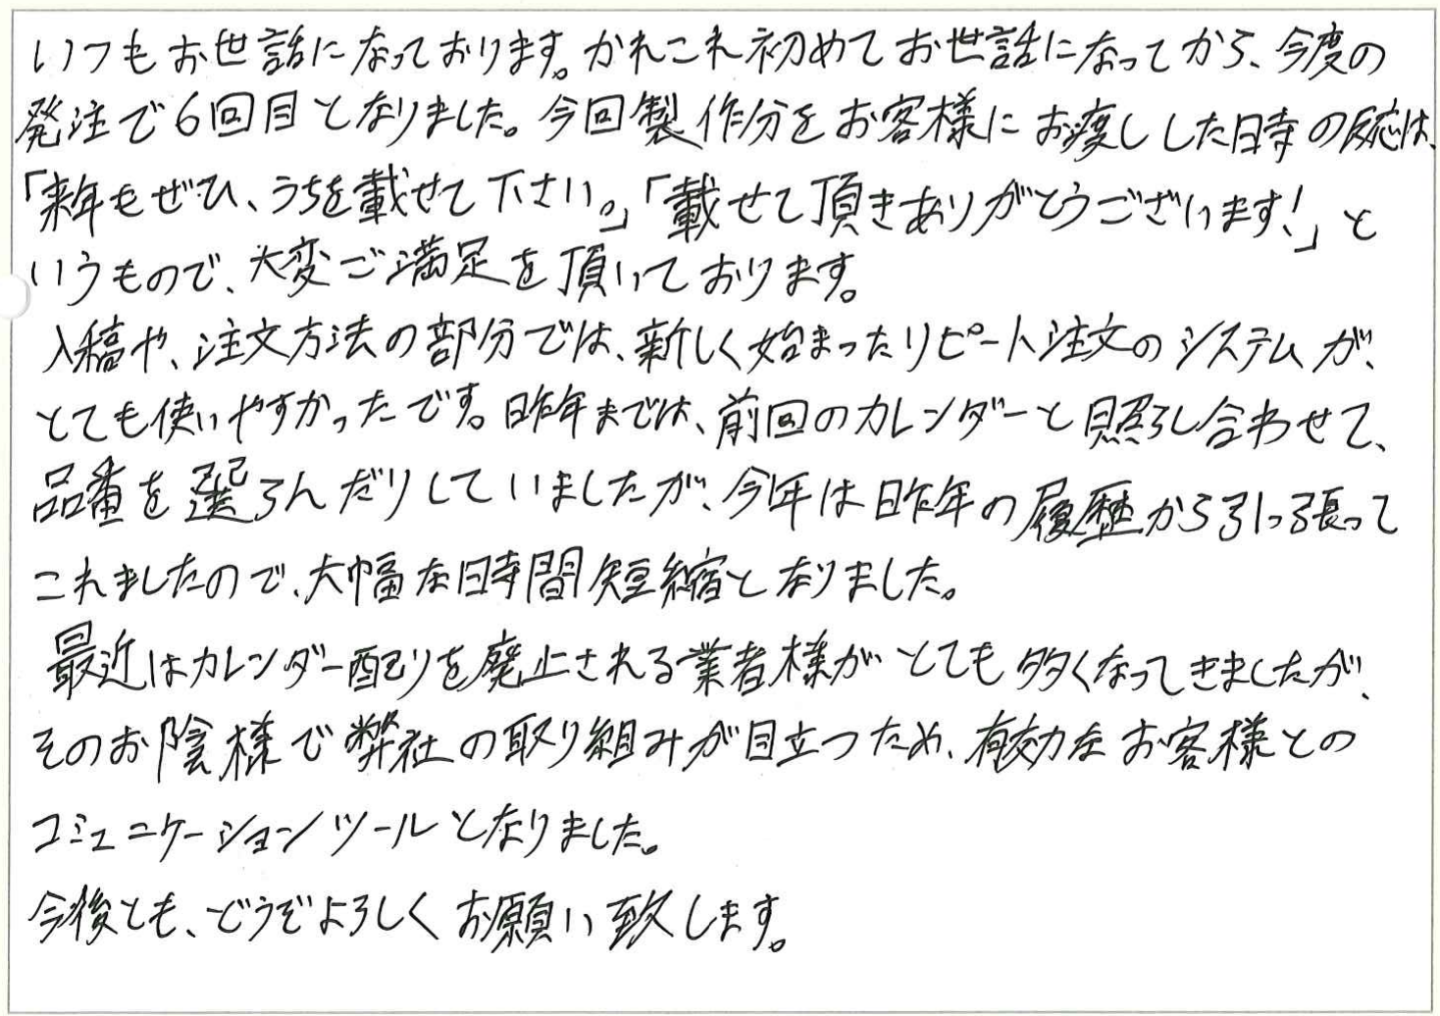 いつもお世話になっております。かれこれ初めてお世話になってから、今度の
発注で6回目となりました。今回製作分をお客様にお渡しした時の反応は、
「来年もぜひ、うちを載せて下さい。」「載せて頂きありがとうございます!」と
いうもので、大変ご満足を頂いております。
入稿や、注文方法の部分では、新しく始まったリピート注文のシステムが、
とても使いやすかったです。昨年までは、前回のカレンダーと照らし合わせて、
品番を選らんだりしていましたが、今年は昨年の履歴から引っ張って
これましたので、大幅な時間短縮となりました。
最近はカレンダー配りを廃止される業者様がとても多くなってきましたが、
そのお陰様で弊社の取り組みが目立つため、有効なお客様との
コミュニケーションツールとなりました。
今後とも、どうぞよろしくお願い致します。